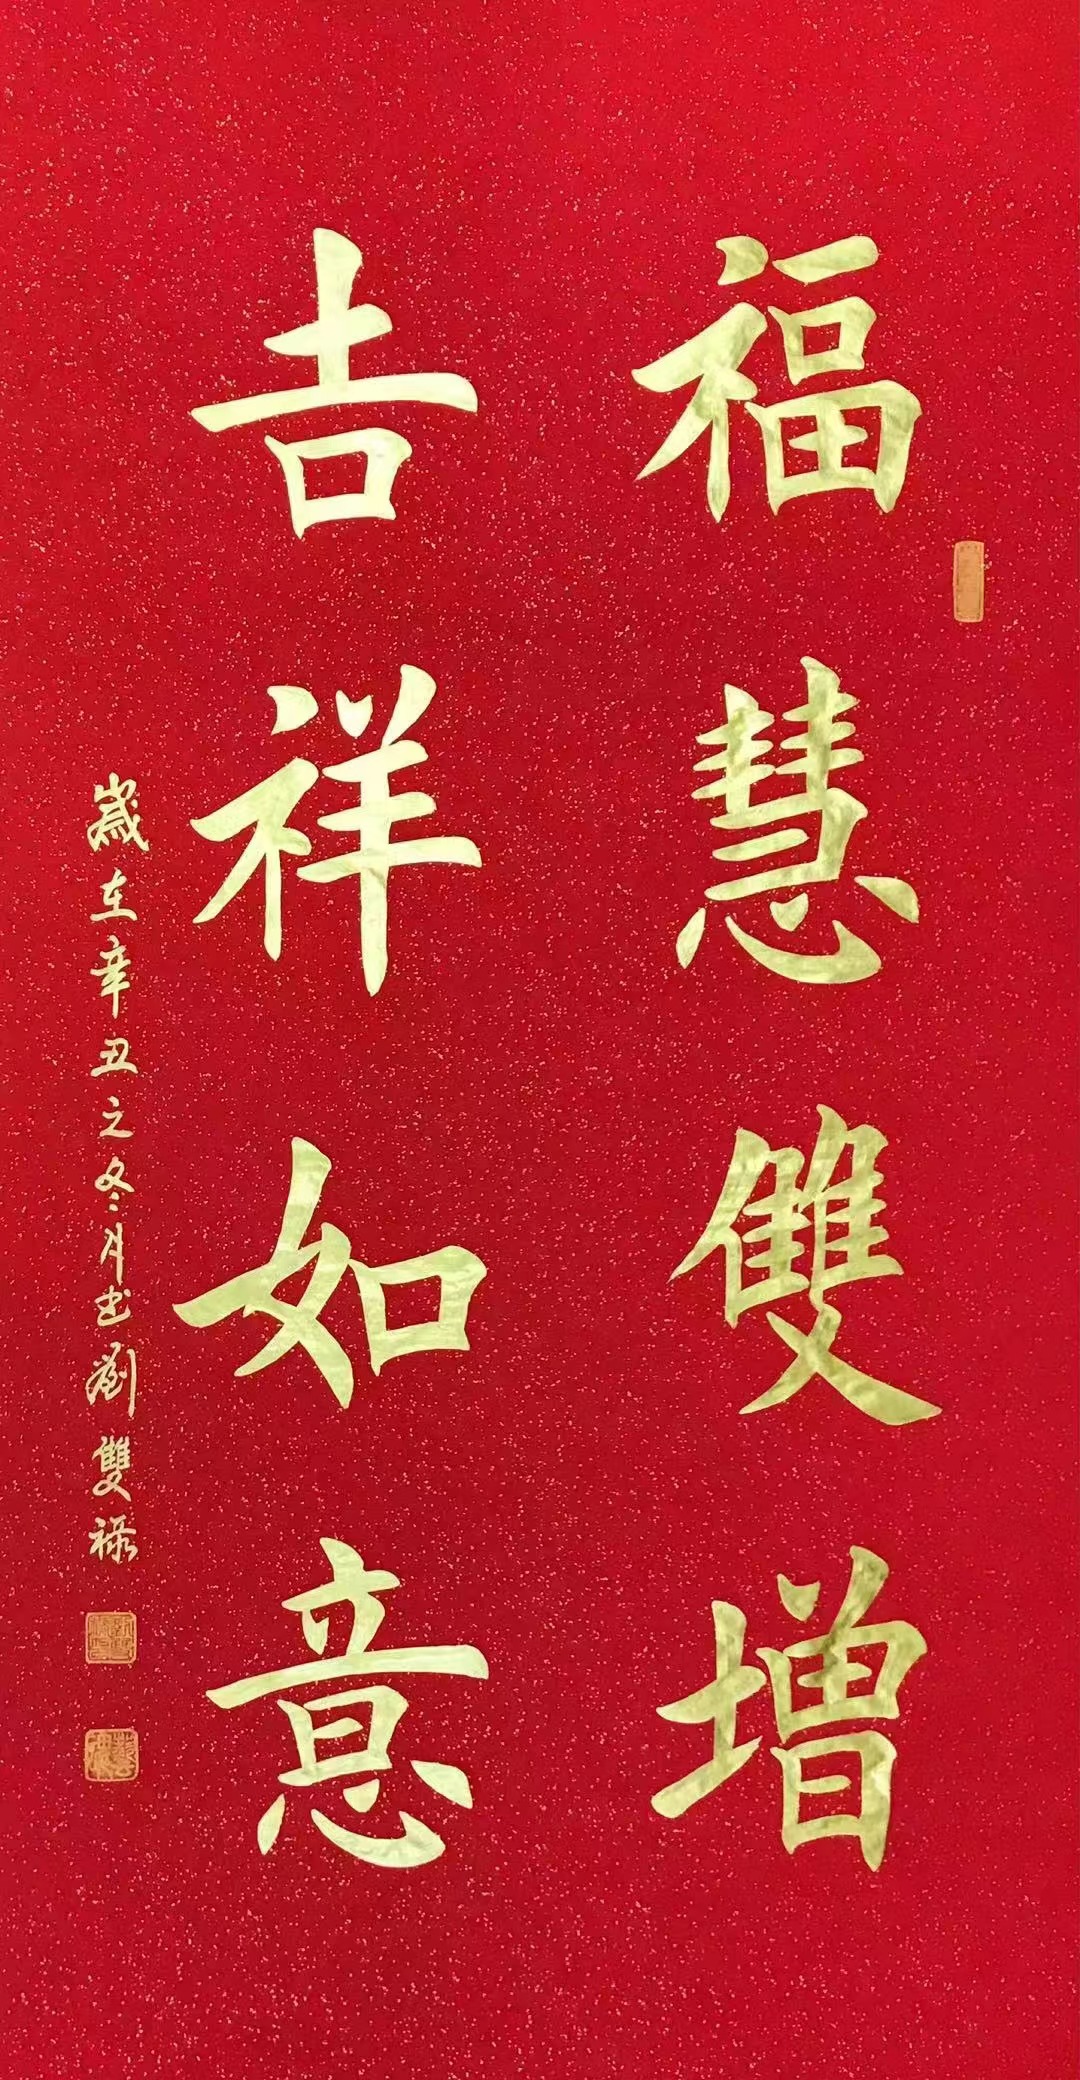 福慧雙增
吉祥如意
歲在辛丑之冬月书劉雙禄